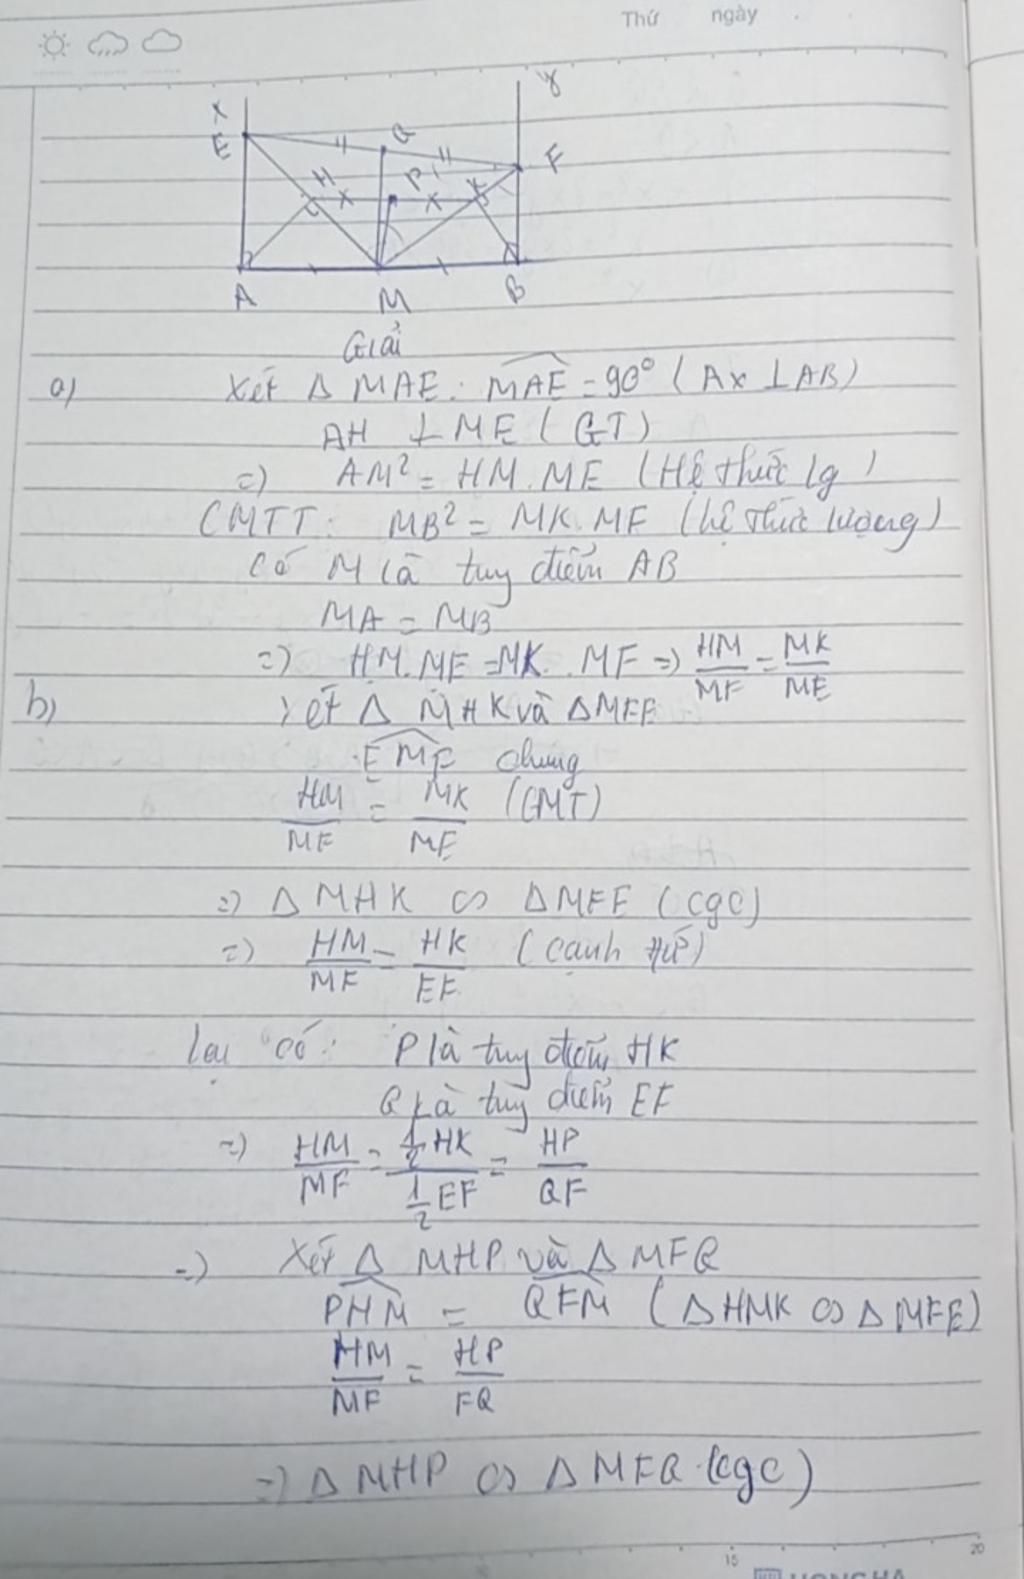 Thứ ngày
x y
E Q F
H P K
A M B
Giải
a) Xét Δ MAE: MAE = 90° (Ax ⊥ AB)
AH ⊥ ME (GT)
=) AM² = HM.ME (Hệ thức lg)
CMTT: MB² = MK.MF (hệ thức lượng)
Có M là tuy điểm AB
MA = MB
=) HM.ME = MK.MF =) HM/MF = MK/ME
b) Xét Δ MHK và ΔMFE
EMF chung
HM/MF = MK/ME (CMT)
=) Δ MHK ∽ ΔMFE (cgc)
=) HM/MF = HK/EF (cạnh tỉ)
Lại có: P là tuy điểm HK
Q là tuy điểm EF
=) HM/MF = 1/2 HK / 1/2 EF = HP/QF
=) Xét Δ MHP và Δ MFQ
PHM = QFM (Δ HMK ∽ Δ MFE)
HM/MF = HP/FQ
=) Δ MHP ∽ Δ MFQ (cgc)
15 20
HONG HA